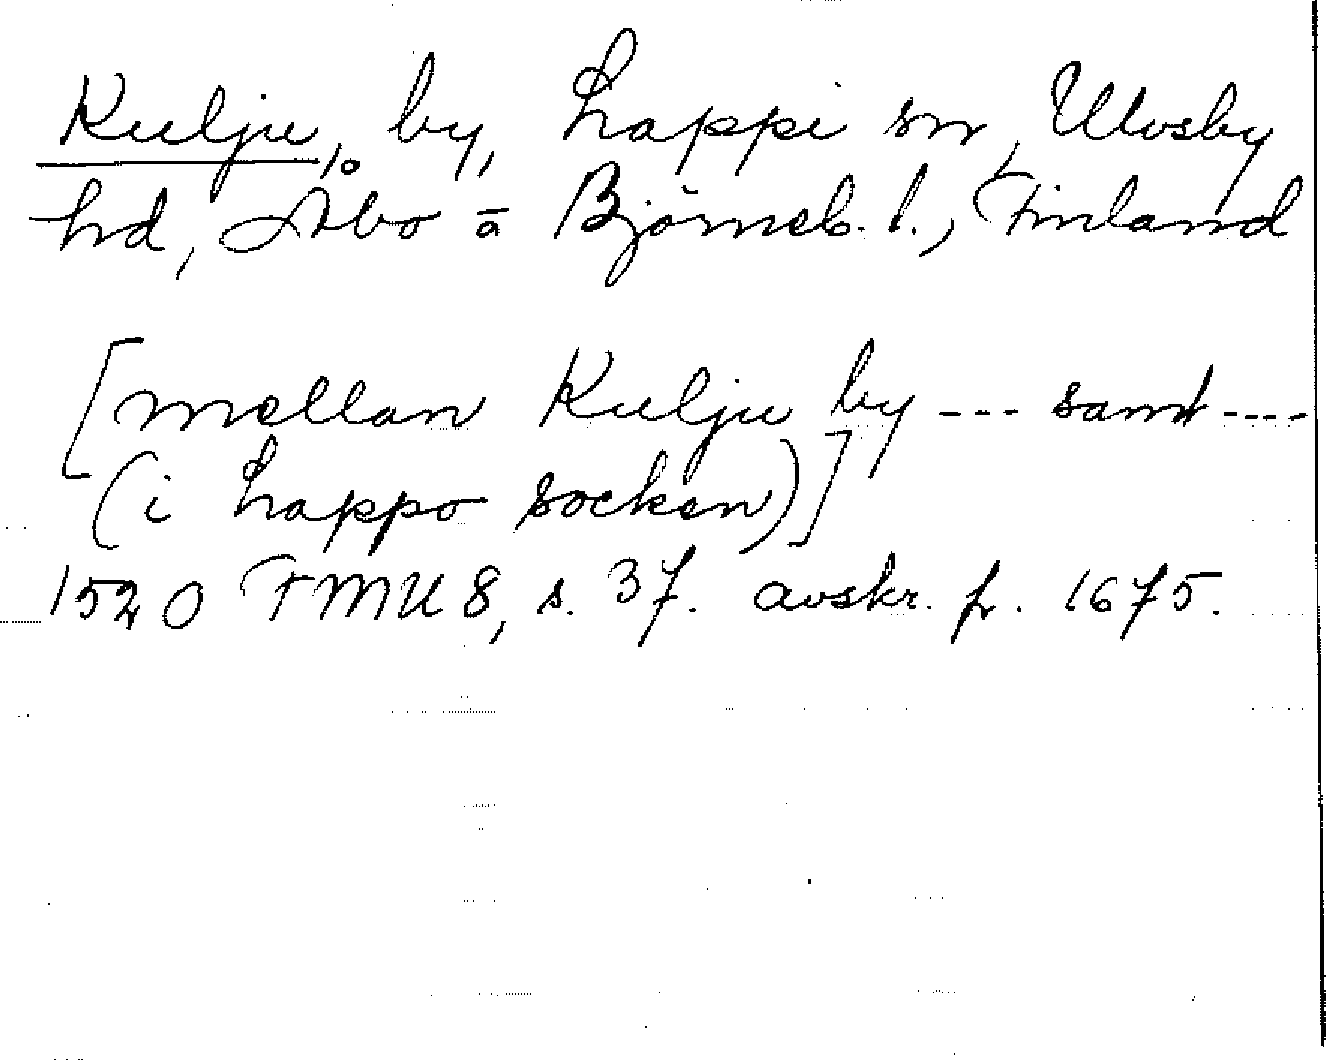 Kulju, by, Lappi sn, Ulvsby
hd, Åbo o Björneb. l., Finland
[mellan Kulju by --- samt ---
(i Lappo socken)]
1520 FMU 8, s. 37. avskr. fr. 1675.